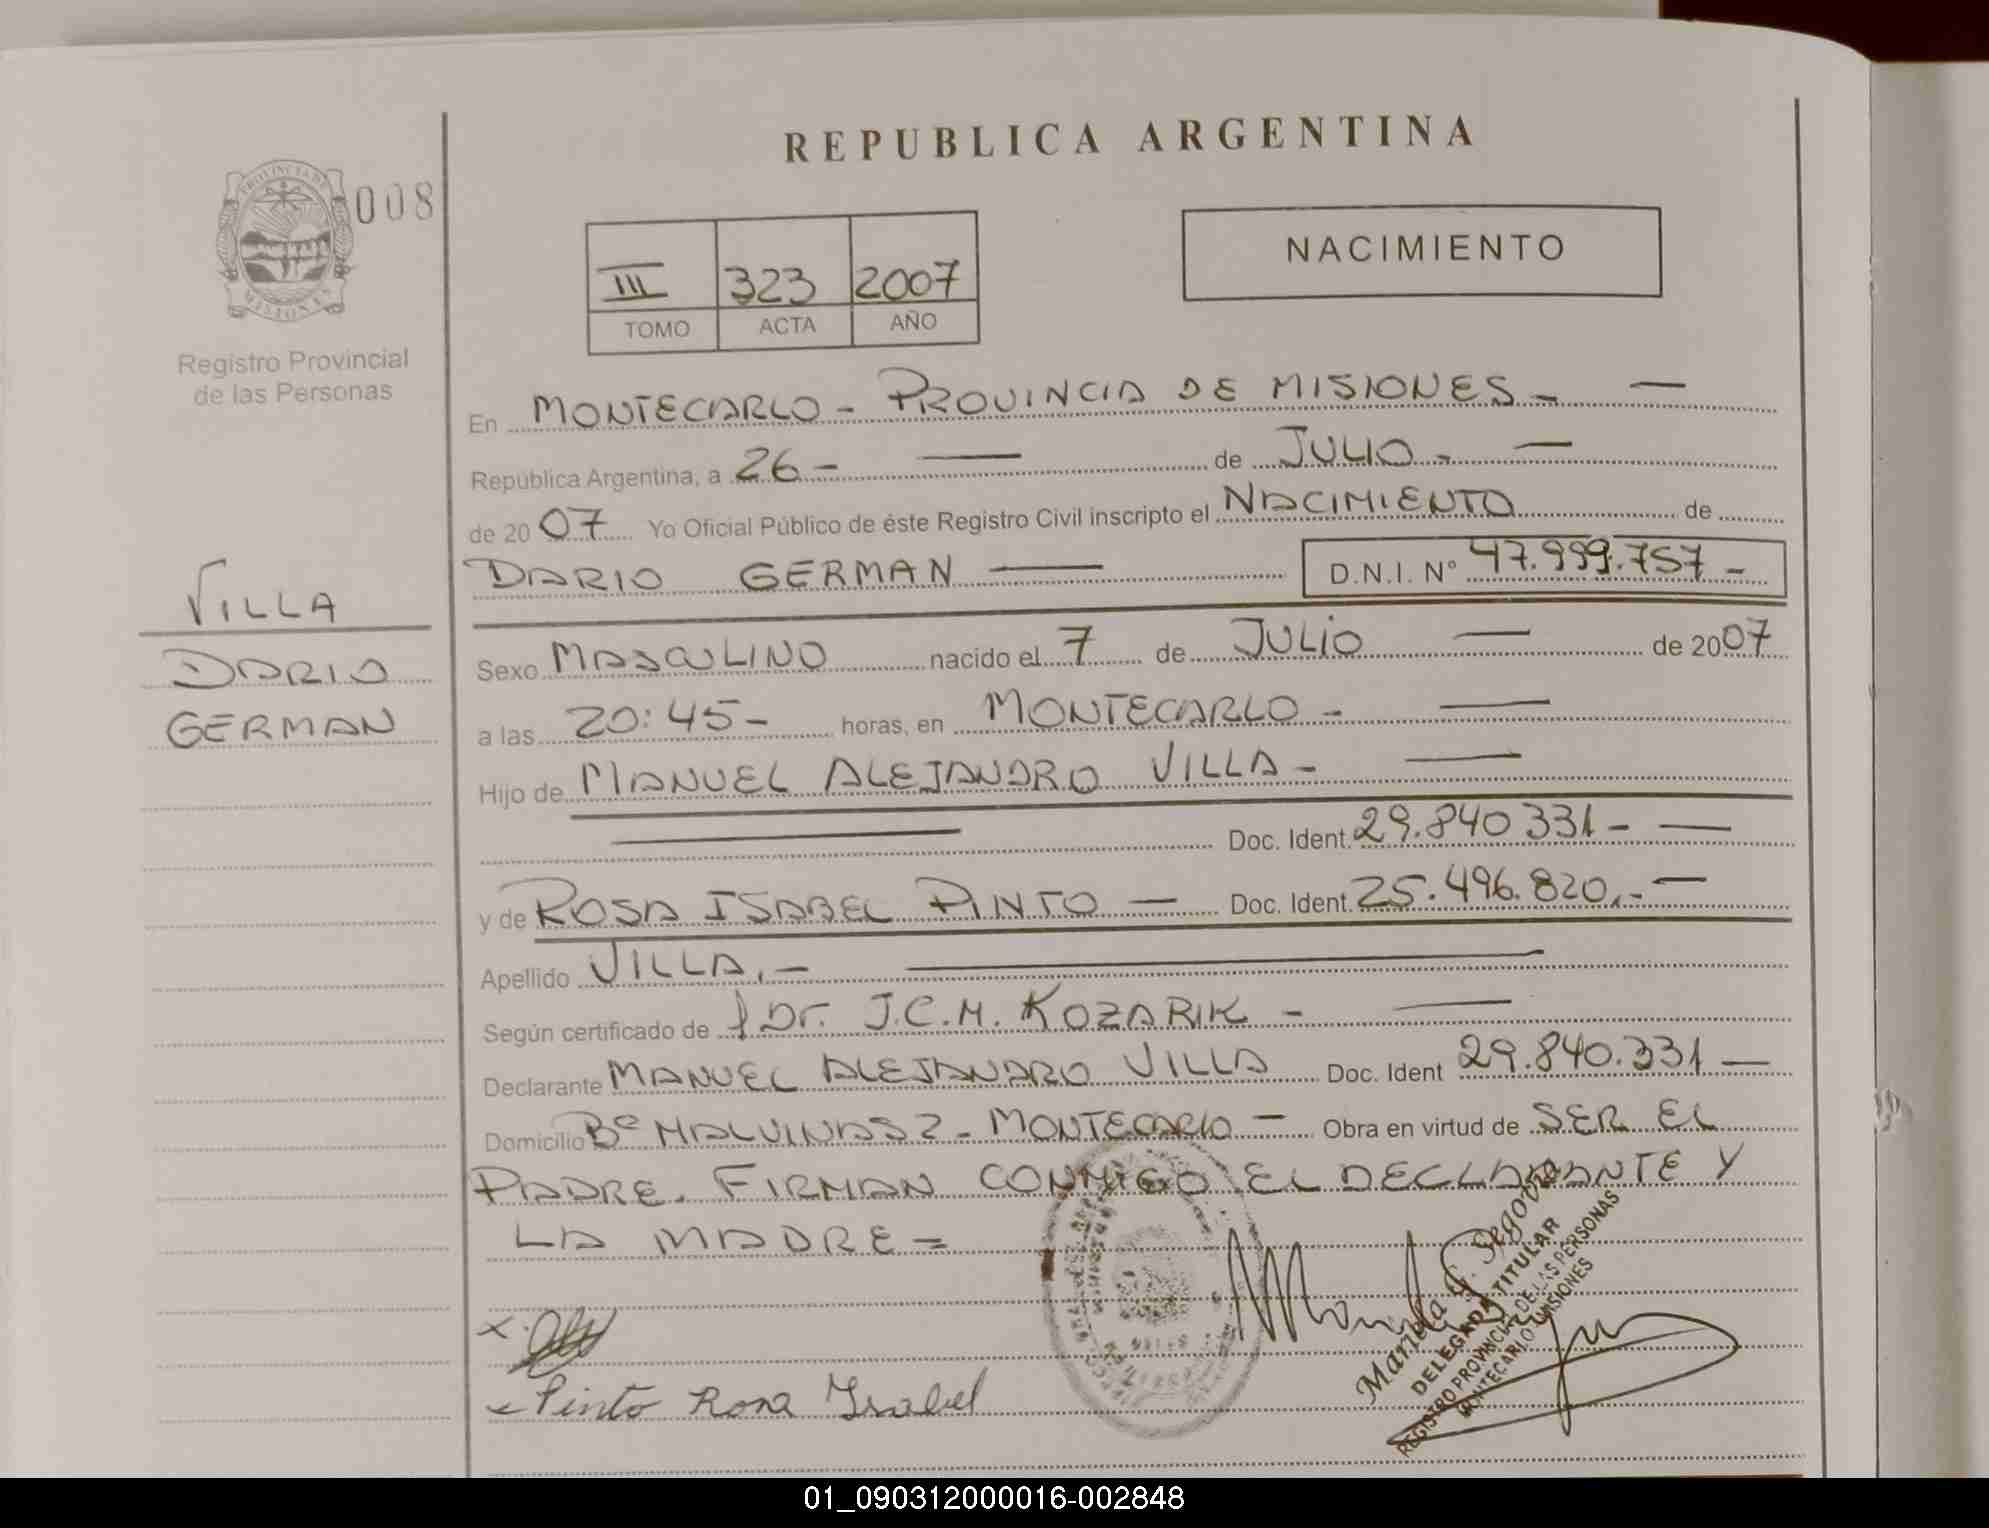 REPUBLICA ARGENTINA
PROVINCIA DE
MISIONES
008
Registro Provincial
de las Personas
III 323 2007
TOMO ACTA AÑO
NACIMIENTO
En MONTECARLO - PROVINCIA DE MISIONES. —
República Argentina, a 26 - — de JULIO - —
de 2007 Yo Oficial Público de éste Registro Civil inscripto el NACIMIENTO de
DARIO GERMAN — D.N.I. N° 47.999.757 -
VILLA
DARIO
GERMAN
Sexo MASCULINO nacido el 7 de JULIO — de 2007
a las 20:45 - horas, en MONTECARLO - —
Hijo de MANUEL ALEJANDRO VILLA - —
— Doc. Ident. 29.840.331 - —
y de ROSA ISABEL PINTO — Doc. Ident. 25.496.820.- —
Apellido VILLA.- —
Según certificado de Dr. J.C.M. KOZARIK - —
Declarante MANUEL ALEJANDRO VILLA Doc. Ident 29.840.331 —
Domicilio Bº MALVINAS 2 - MONTECARLO — Obra en virtud de SER EL
PADRE. FIRMAN CONMIGO EL DECLARANTE Y
LA MADRE =
x
Pinto Rosa Isabel
Mariela
DELEGADA TITULAR
REGISTRO PROVINCIAL DE LAS PERSONAS
MONTECARLO - MISIONES
01_090312000016-002848